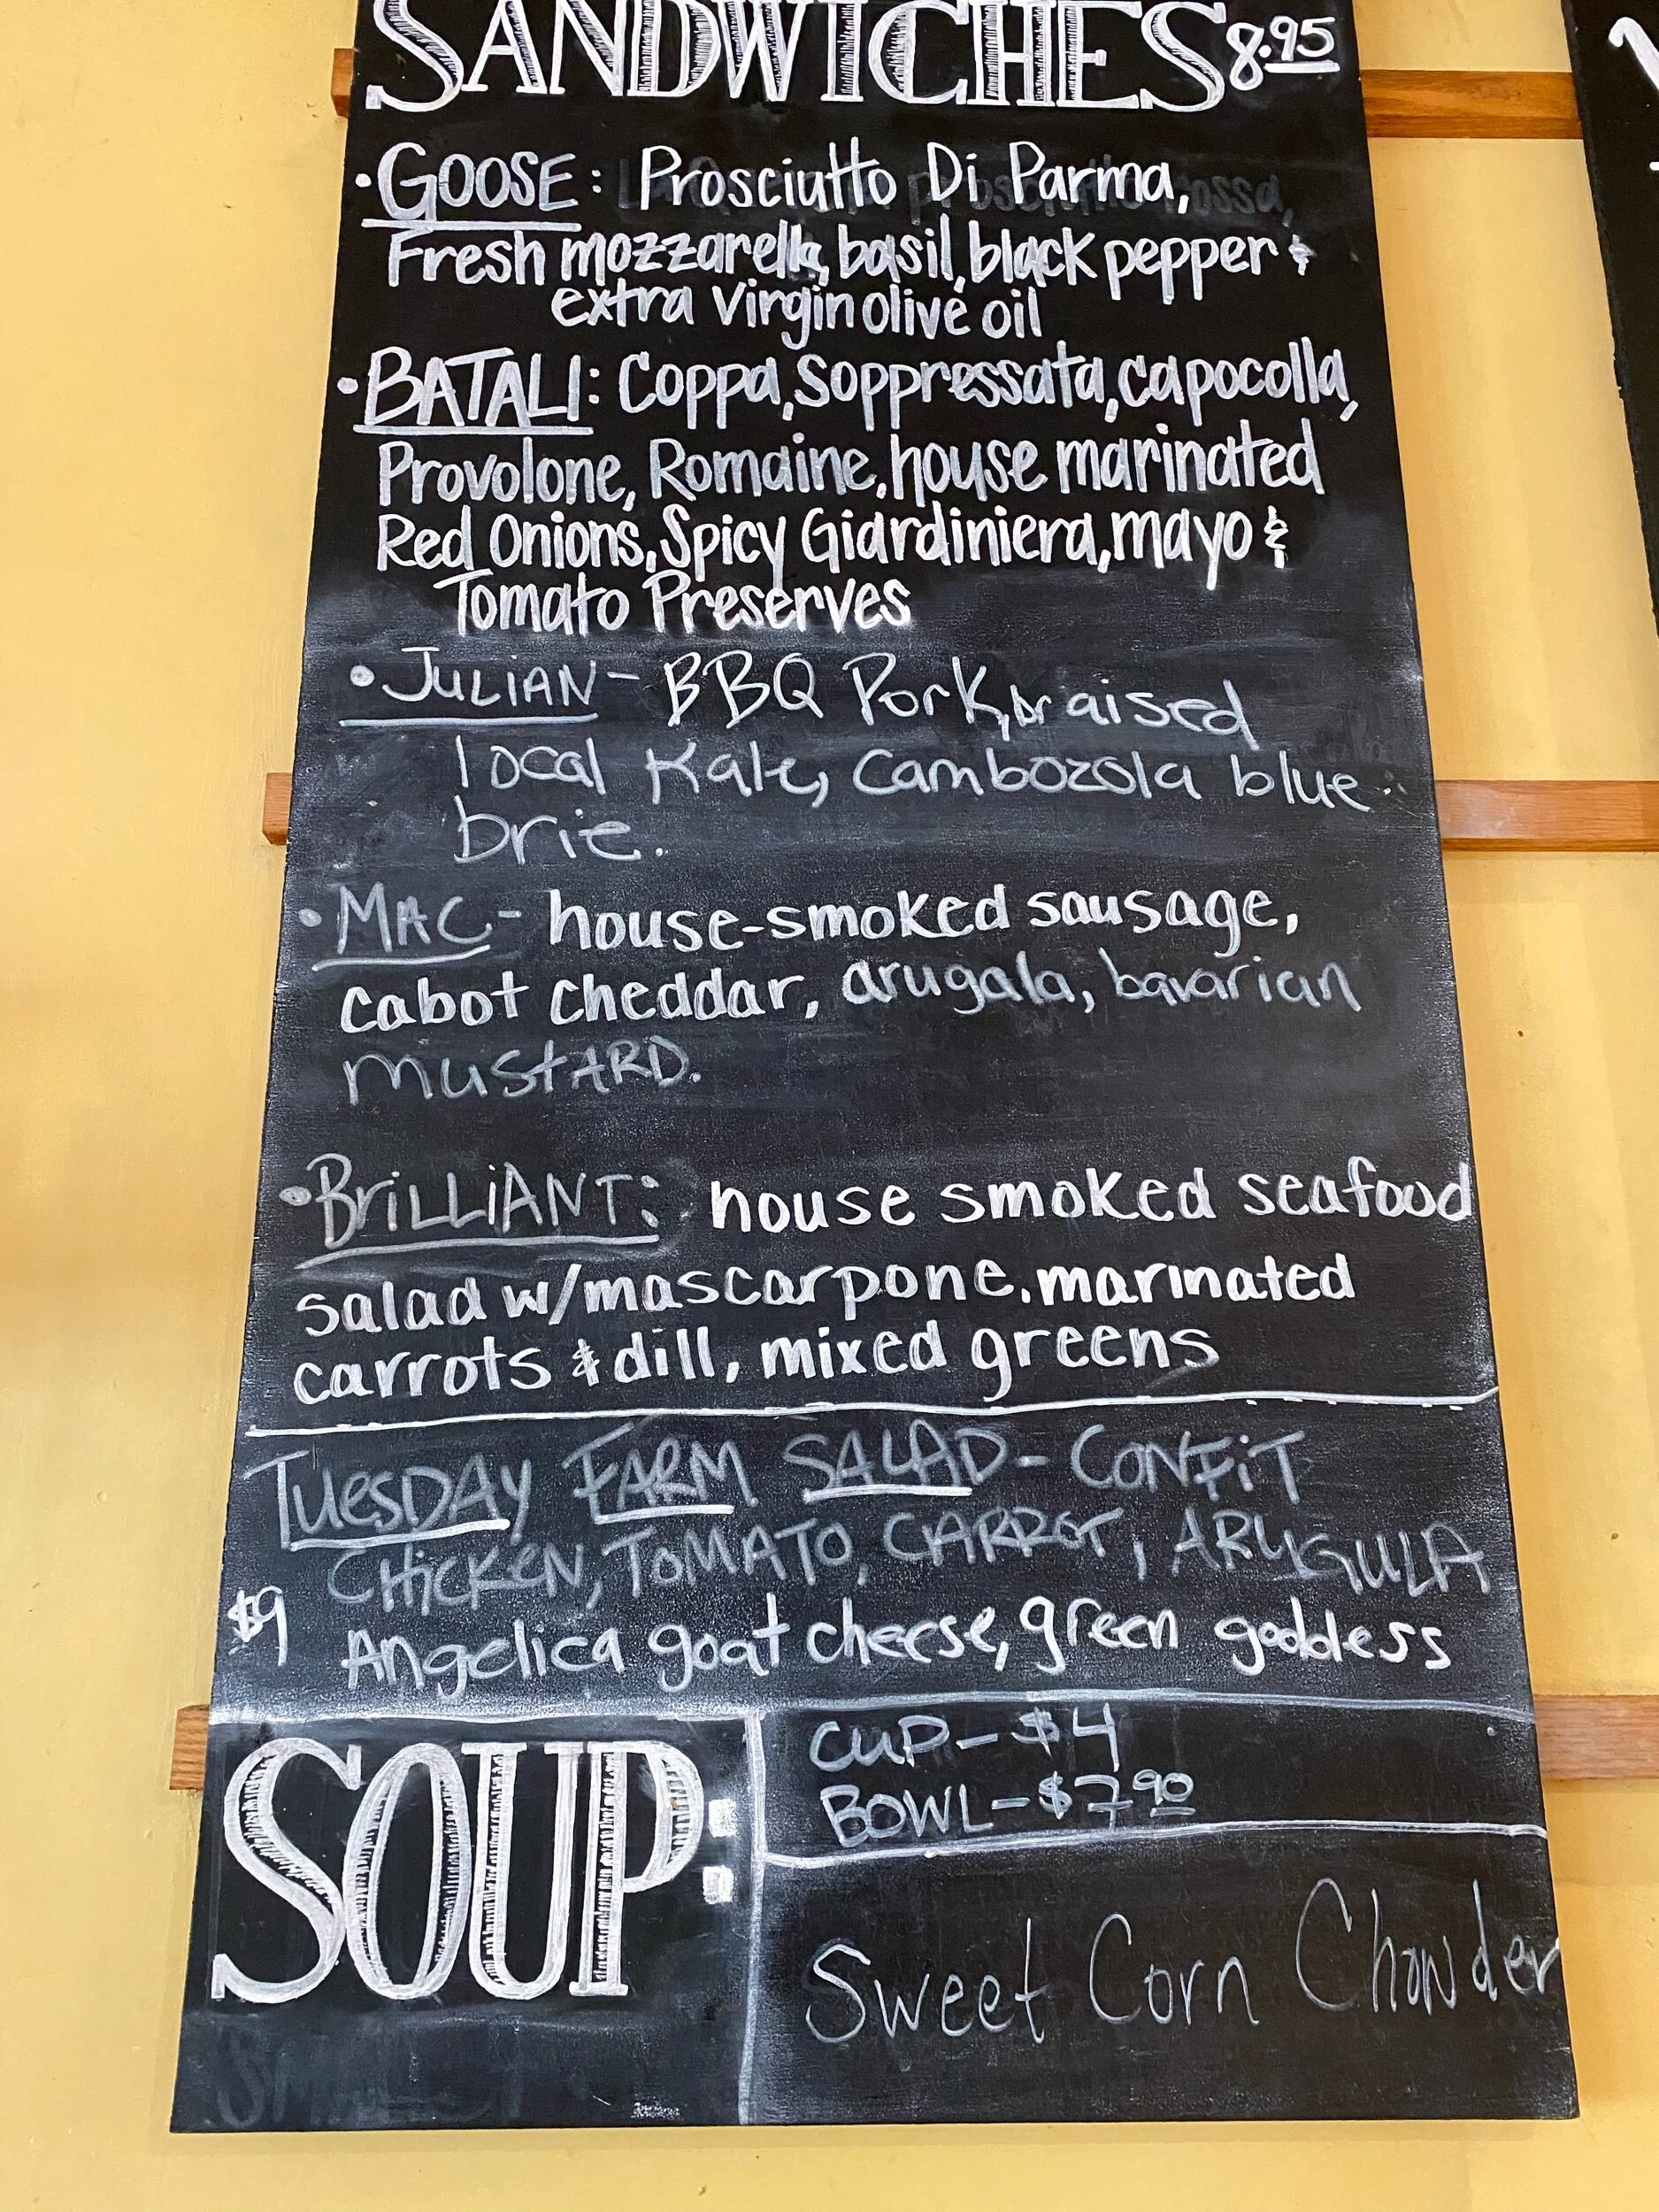 SANDWICHES 8.95
• GOOSE: Prosciutto Di Parma,
Fresh mozzarella, basil, black pepper &
extra virgin olive oil
• BATALI: Coppa, Soppressata, capocolla,
Provolone, Romaine, house marinated
Red Onions, Spicy Giardiniera, mayo &
Tomato Preserves
• JULIAN - BBQ Pork, braised
local Kale, Cambozola blue
brie.
• MAC - house-smoked sausage,
cabot cheddar, arugala, bavarian
mustARD.
• BRiLLiANT: house smoked seafood
salad w/mascarpone. marinated
carrots & dill, mixed greens
TUESDAY FARM SALAD - CONFiT
CHiCKEN, TOMATO, CARROT, ARUGULA
$9 Angelica goat cheese, green goddess
SOUP:
CUP - $4
BOWL - $7.90
Sweet Corn Chowder